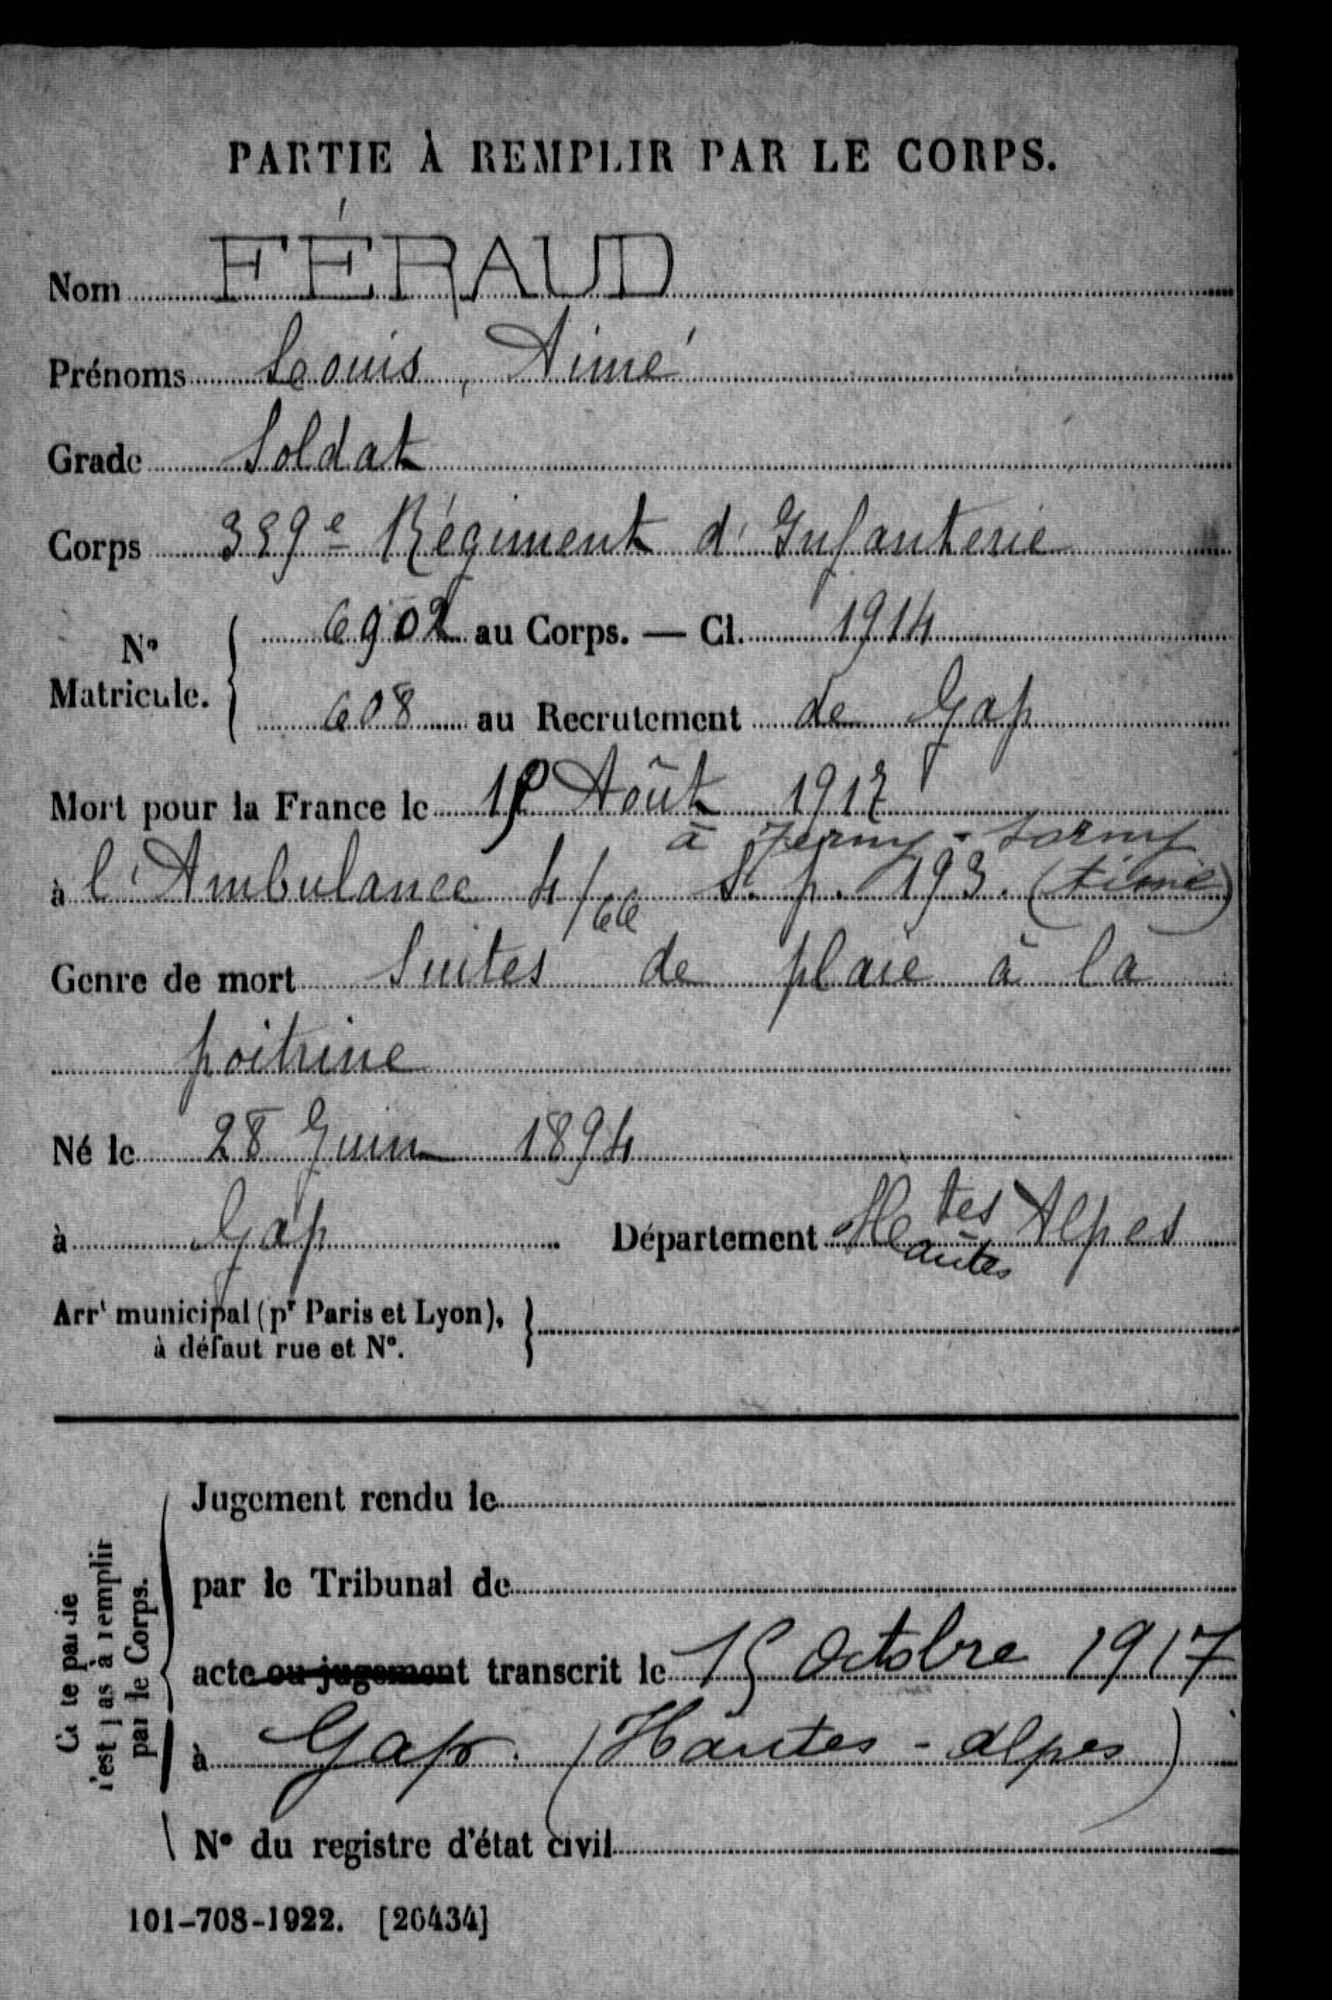 PARTIE À REMPLIR PAR LE CORPS.
Nom FÉRAUD
Prénoms Louis, Aimé
Grade Soldat
Corps 359e Régiment d'Infanterie
N° Matricule. 6902 au Corps. — Cl. 1914
608 au Recrutement de Gap
Mort pour la France le Août 1917
à
à l'Ambulance 4/66 S. p. 193.
Genre de mort Suites de plaie à la
poitrine
Né le 28 Juin 1894
à Gap Département Htes Alpes
autes
Arrt municipal (pr Paris et Lyon),
à défaut rue et N°.
Jugement rendu le
par le Tribunal de
acte ou jugement transcrit le 15 Octobre 1917
à Gap. (Hautes-Alpes)
N° du registre d'état civil
Cette partie
n'est pas à remplir
par le Corps.
101-708-1922. [26434]